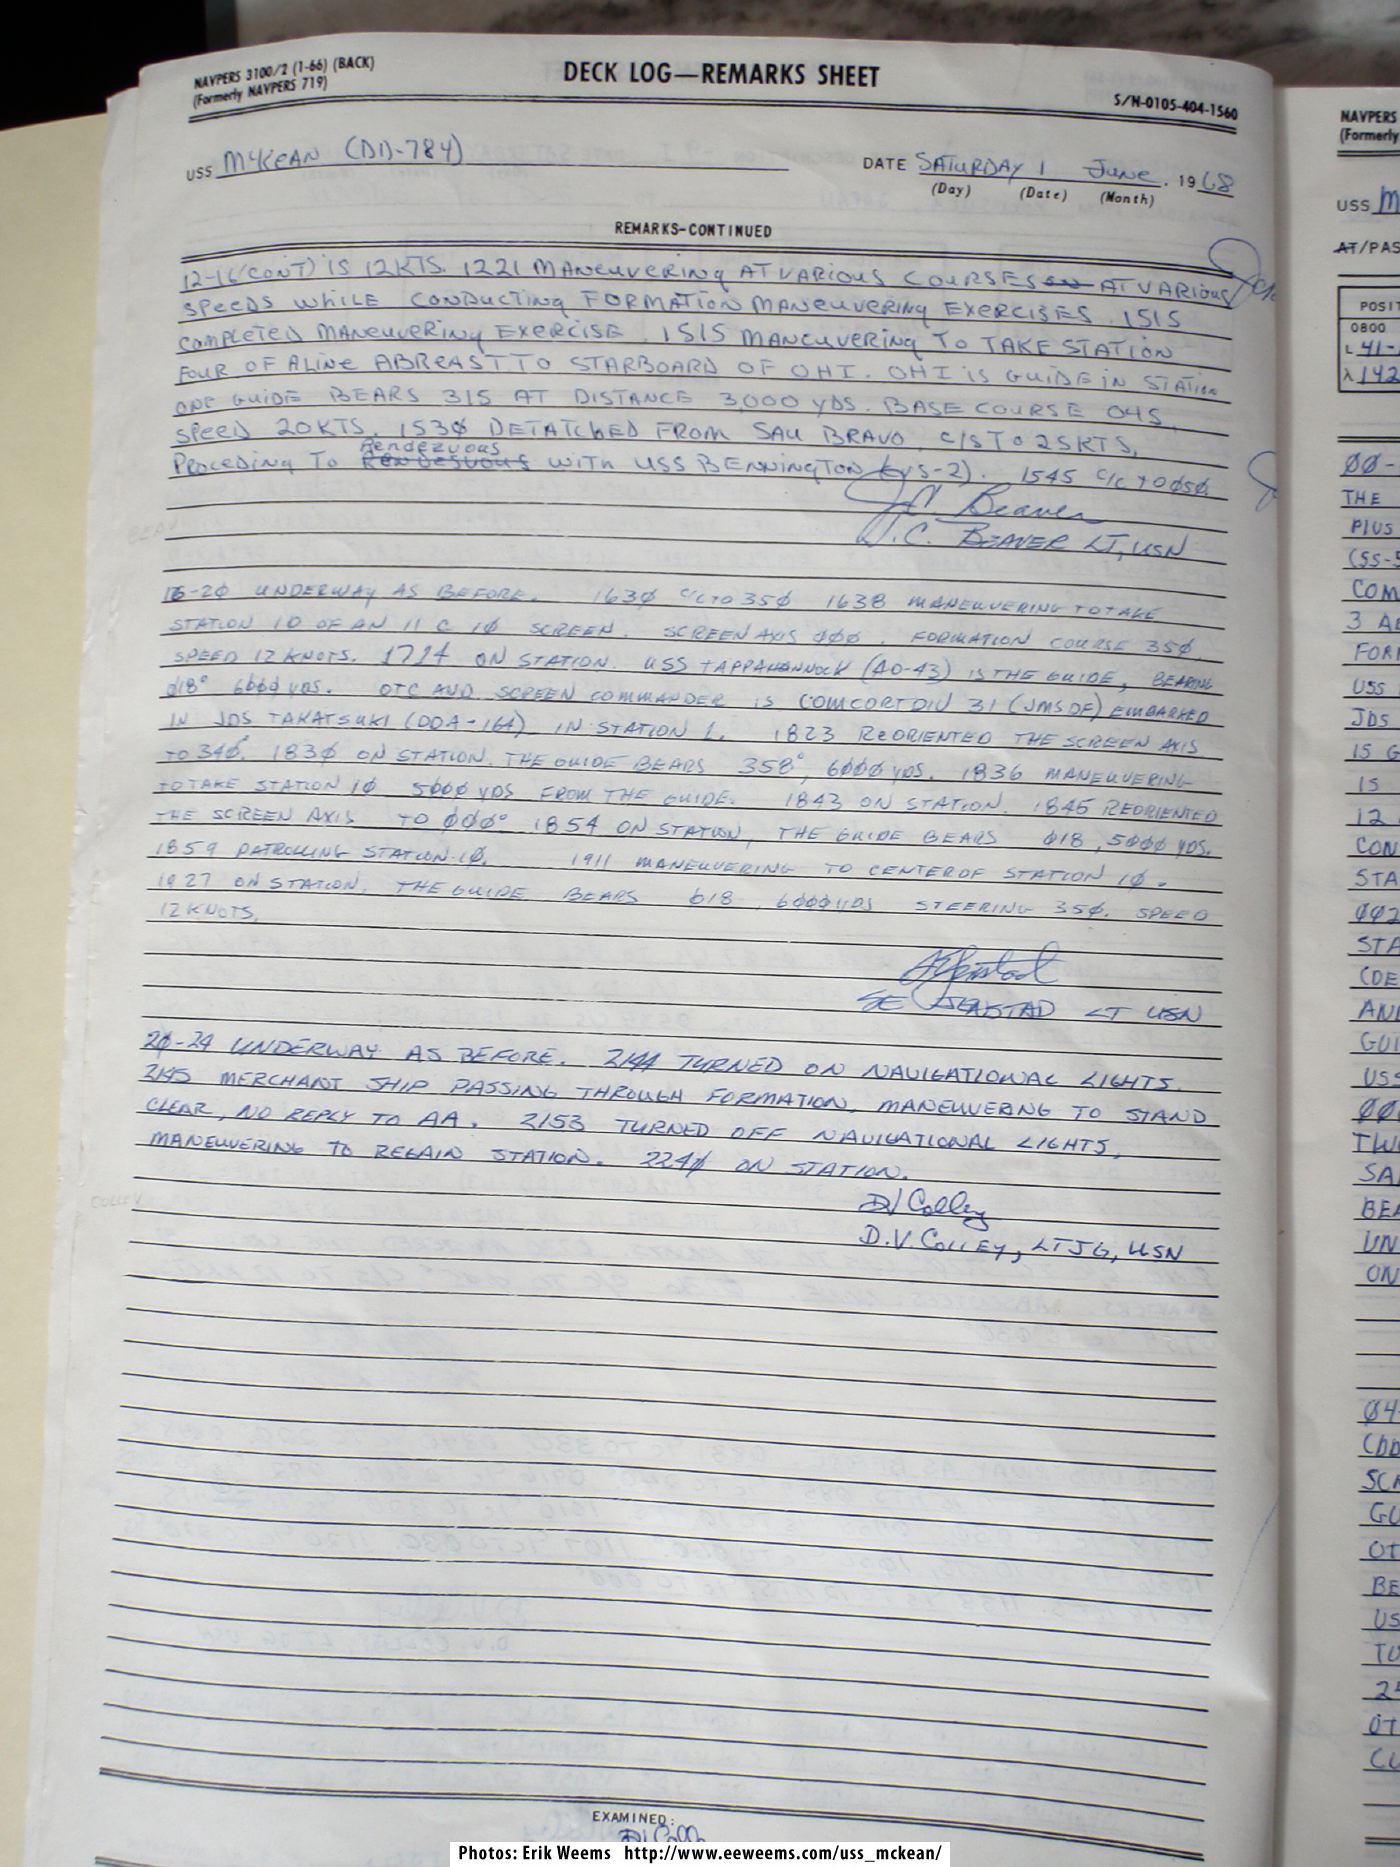 NAVPERS 3100/2 (1-66) (BACK)
(Formerly NAVPERS 719)
DECK LOG—REMARKS SHEET
S/N-0105-404-1560
USS McKEAN (DD-784)
DATE SATURDAY 1 June, 1968
(Day) (Date) (Month)
REMARKS-CONTINUED
12-16 (CONT) IS 12KTS. 1221 MANEUVERING AT VARIOUS COURSES AT VARIOUS
SPEEDS WHILE CONDUCTING FORMATION MANEUVERING EXERCISES. 1515
COMPLETED MANEUVERING EXERCISE. 1515 MANEUVERING TO TAKE STATION
FOUR OF A LINE ABREAST TO STARBOARD OF OHI. OHI IS GUIDE IN STATION
ONE GUIDE BEARS 315 AT DISTANCE 3,000 YDS. BASE COURSE 045
SPEED 20KTS. 153Ø DETATCHED FROM SAU BRAVO. C/S TO 25KTS,
Rendezvous
PROCEDING TO WITH USS BENNINGTON (CVS-2). 1545 C/C TO Ø5Ø.
J.C. Beaver
J.C. BEAVER LT, USN
BEAV
16-2Ø UNDERWAY AS BEFORE. 163Ø C/C TO 35Ø 1638 MANEUVERING TO TAKE
STATION 1Ø OF AN 11 C 1Ø SCREEN. SCREEN AXIS ØØØ. FORMATION COURSE 35Ø
SPEED 12 KNOTS. 1714 ON STATION. USS TAPPAHANNOCK (AO-43) IS THE GUIDE, BEARING
Ø18° 6ØØØ YDS. OTC AND SCREEN COMMANDER IS COMCORTDIV 31 (JMSDF) EMBARKED
IN JDS TAKATSUKI (DDA-164) IN STATION 1. 1823 REORIENTED THE SCREEN AXIS
TO 34Ø°. 183Ø ON STATION. THE GUIDE BEARS 358°, 6ØØØ YDS. 1836 MANEUVERING
TO TAKE STATION 1Ø 5ØØØ YDS FROM THE GUIDE. 1843 ON STATION. 1845 REORIENTED
THE SCREEN AXIS TO ØØØ° 1854 ON STATION, THE GUIDE BEARS Ø18, 5ØØØ YDS.
1859 PATROLLING STATION 1Ø. 1911 MANEUVERING TO CENTER OF STATION 1Ø.
1927 ON STATION. THE GUIDE BEARS Ø18, 6ØØØ YDS STEERING 35Ø. SPEED
12 KNOTS.
LT USN
2Ø-24 UNDERWAY AS BEFORE. 2144 TURNED ON NAVIGATIONAL LIGHTS.
2145 MERCHANT SHIP PASSING THROUGH FORMATION, MANEUVERING TO STAND
CLEAR, NO REPLY TO AA. 2153 TURNED OFF NAVIGATIONAL LIGHTS,
MANEUVERING TO REGAIN STATION. 224Ø ON STATION.
DV Colley
D.V. COLLEY, LTJG, USN
COLLEY
EXAMINED:
NAVPERS
(Formerly
USS M
AT/PAS
POSIT
0800
L 41-
λ 142
ØØ-
THE
PLUS
(SS-5
COM
3 AE
FORM
USS
JDS
15 G
15
12
CON
STA
ØØ2
STA
COE
AND
GUI
USS
ØØ
TW
SA
BEA
UN
ON
Ø4-
SCR
GU
OT
BE
US
TO
OT
Photos: Erik Weems http://www.eeweems.com/uss_mckean/